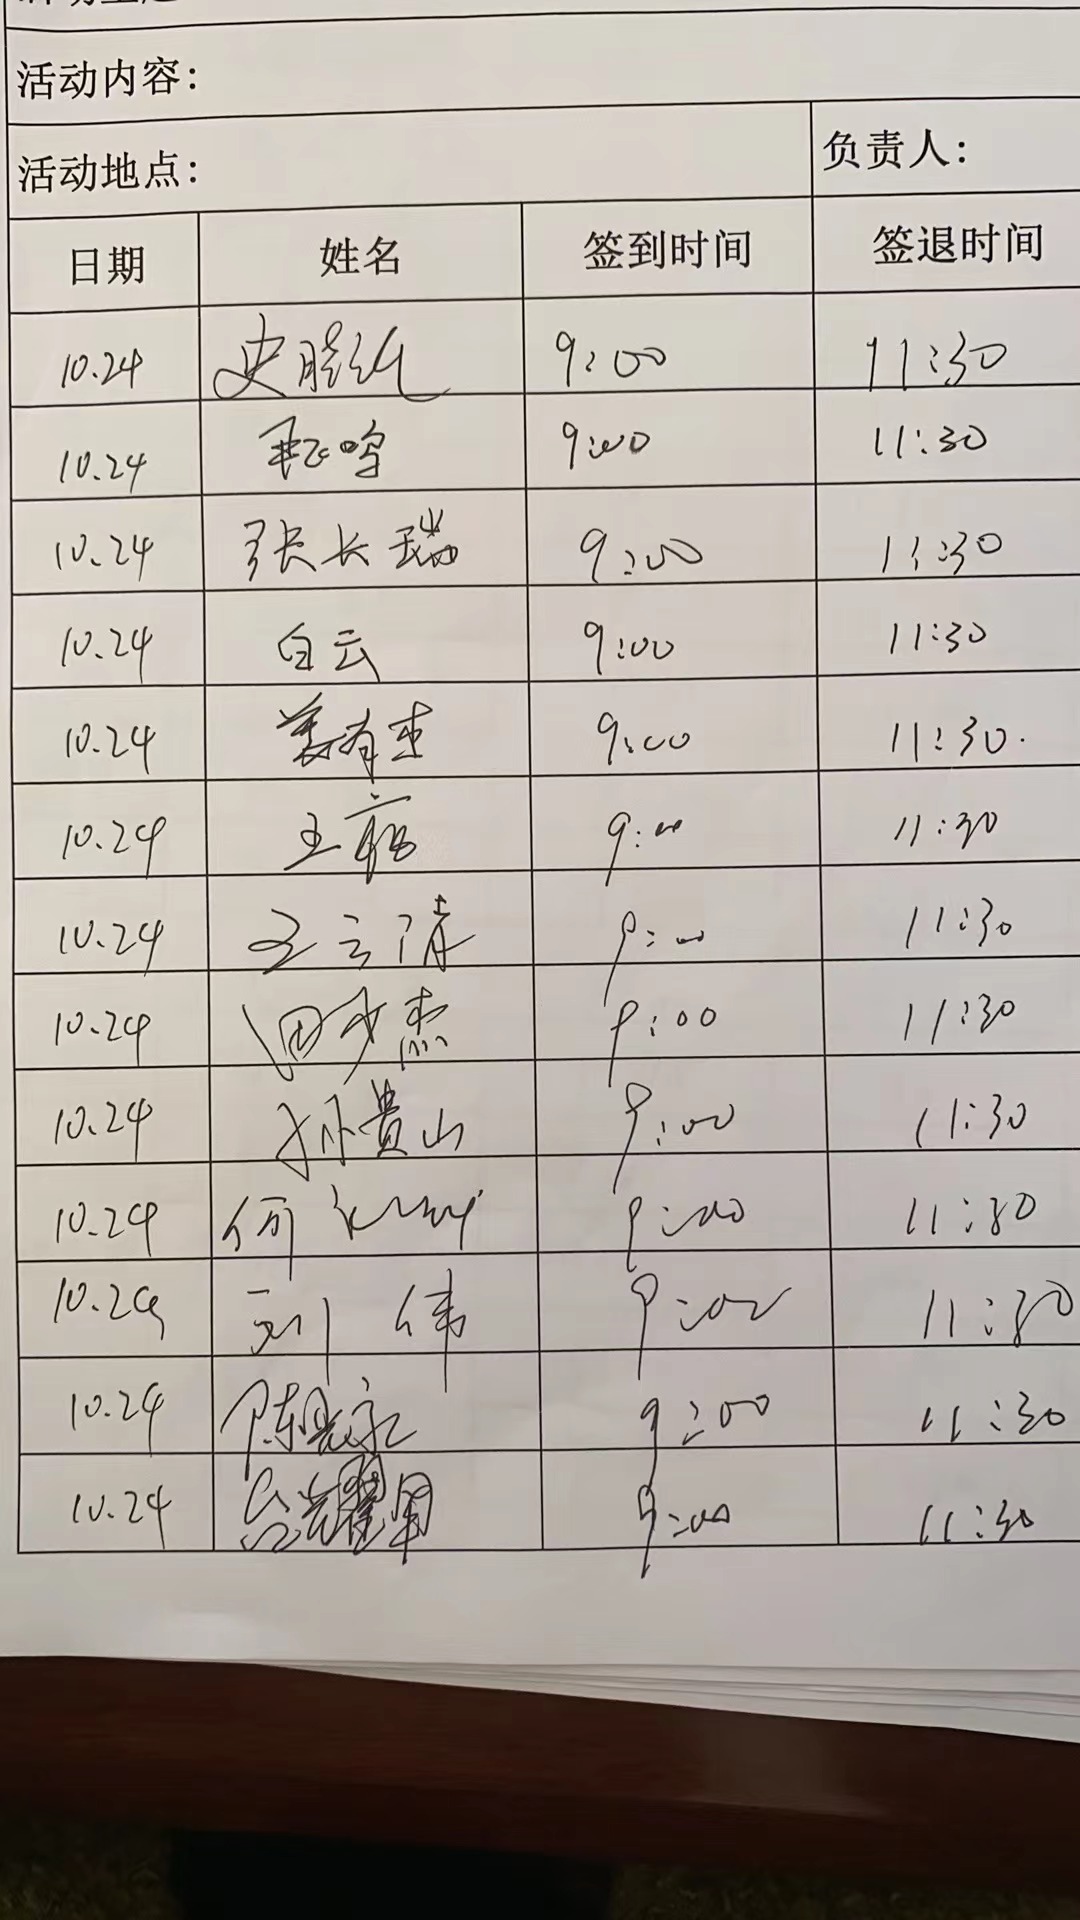 活动内容：
活动地点： 负责人：
日期 姓名 签到时间 签退时间
10.24 史 9:00 11:30
10.24 鸣 9:00 11:30
10.24 张长瑞 9:00 11:30
10.24 白云 9:00 11:30
10.24 姜有 9:00 11:30.
10.24 王 9:00 11:30
10.24 王云清 9:00 11:30
10.24 田杰 9:00 11:30
10.24 孙贵山 9:00 11:30
10.24 何 9:00 11:30
10.24 刘伟 9:00 11:30
10.24 陈 9:00 11:30
10.24 耀军 9:00 11:30